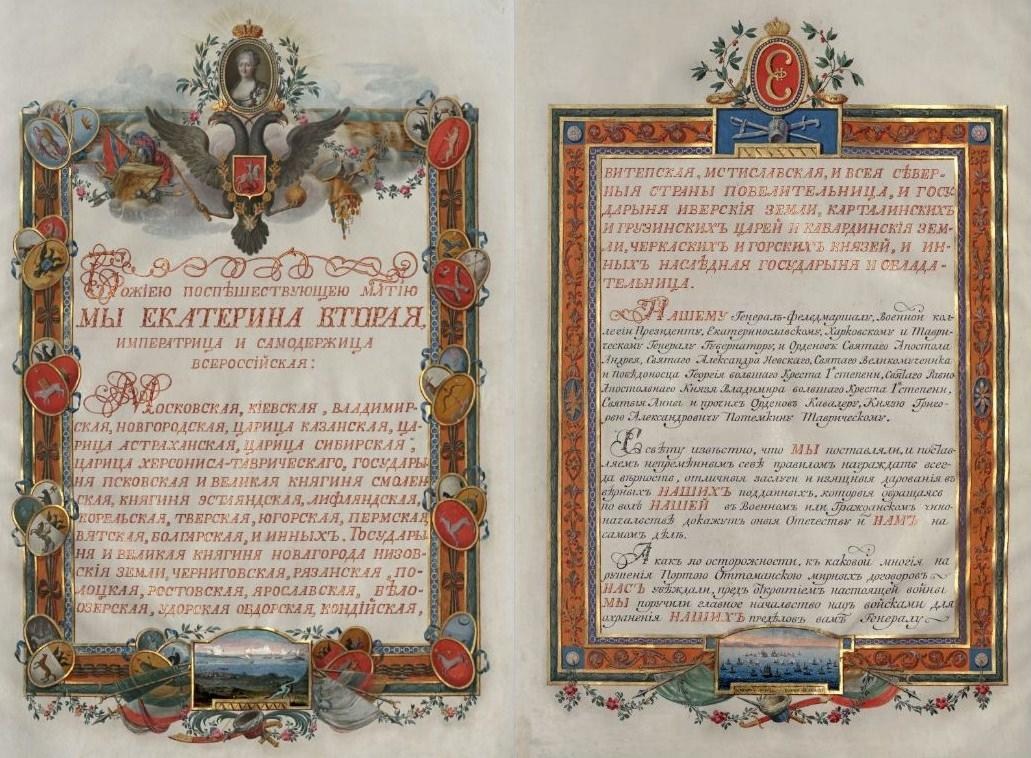 БОЖІЕЮ ПОСПѢШЕСТВУЮЩЕЮ МЛТІЮ
МЫ ЕКАТЕРИНА ВТОРАЯ,
ИМПЕРАТРИЦА И САМОДЕРЖИЦА
ВСЕРОССІЙСКАЯ:
МОСКОВСКАЯ, КІЕВСКАЯ, ВЛАДИМИР-
СКАЯ, НОВГОРОДСКАЯ, ЦАРИЦА КАЗАНСКАЯ, ЦА-
РИЦА АСТРАХАНСКАЯ, ЦАРИЦА СИБИРСКАЯ,
ЦАРИЦА ХЕРСОНИСА-ТАВРИЧЕСКАГО, ГОСУДАРЫ
НЯ ПСКОВСКАЯ И ВЕЛИКАЯ КНЯГИНЯ СМОЛЕН
СКАЯ, КНЯГИНЯ ЭСТЛЯНДСКАЯ, ЛИФЛЯНДСКАЯ,
КОРЕЛЬСКАЯ, ТВЕРСКАЯ, ЮГОРСКАЯ, ПЕРМСКАЯ
ВЯТСКАЯ, БОЛГАРСКАЯ, И ИННЫХЪ. ГОСУДАРЫ
НЯ И ВЕЛИКАЯ КНЯГИНЯ НОВАГОРОДА НИЗОВ-
СКІЯ ЗЕМЛИ, ЧЕРНИГОВСКАЯ, РЯЗАНСКАЯ, ПО-
ЛОЦКАЯ, РОСТОВСКАЯ, ЯРОСЛАВСКАЯ, БѢЛО-
ОЗЕРСКАЯ, УДОРСКАЯ ОБДОРСКАЯ, КОНДІЙСКАЯ,
ВИТЕПСКАЯ, МСТИСЛАВСКАЯ, И ВСЕЯ СѢВЕР-
НЫЯ СТРАНЫ ПОВЕЛИТЕЛЬНИЦА, И ГОСУ
ДАРЫНЯ ИВЕРСКІЯ ЗЕМЛИ, КАРТАЛИНСКИХЪ
И ГРУЗИНСКИХЪ ЦАРЕЙ И КАБАРДИНСКІЯ ЗЕМ-
ЛИ, ЧЕРКАСКИХЪ И ГОРСКИХЪ КНЯЗЕЙ, И ИН-
НЫХЪ НАСЛѢДНАЯ ГОСУДАРЫНЯ И ОБЛАДА-
ТЕЛЬНИЦА.
НАШЕМУ Генералъ-фелдмаршалу, Военной кол-
легіи Президенту, Екатеринославскому, Харковскому и Таври-
ческому Генералу Губернатору, и Орденовъ Святаго Апостола
Андрея, Святаго Александра Невскаго, Святаго Великомученика
и Побѣдоносца Георгія большаго Креста 1й степени, Святаго Равно
Апостольнаго Князя Владимира большаго Креста 1й степени,
Святыя Анны и прочихъ Орденовъ Кавалеру, Князю Григо-
рью Александровичу Потемкину Таврическому.
Свѣту извѣстно, что МЫ поставляли, и постав-
ляемъ непремѣннымъ себѣ правиломъ награждать всег-
да вѣрность, отличныя заслуги и изящныя дарованія въ
вѣрныхъ НАШИХЪ подданныхъ, которыя обращаяся
по волѣ НАШЕЙ въ Военномъ или Гражданскомъ чино-
началствѣ докажутъ оныя Отечеству и НАМЪ на
самомъ дѣлѣ.
А какъ по осторожности, къ каковой многія на
рушенія Портою Оттоманскою мирныхъ договоровъ
НАСЪ убѣждали, предъ открытіемъ настоящей войны
МЫ поручили главное началство надъ войсками для
охраненія НАШИХЪ предѣловъ вамъ Генералу